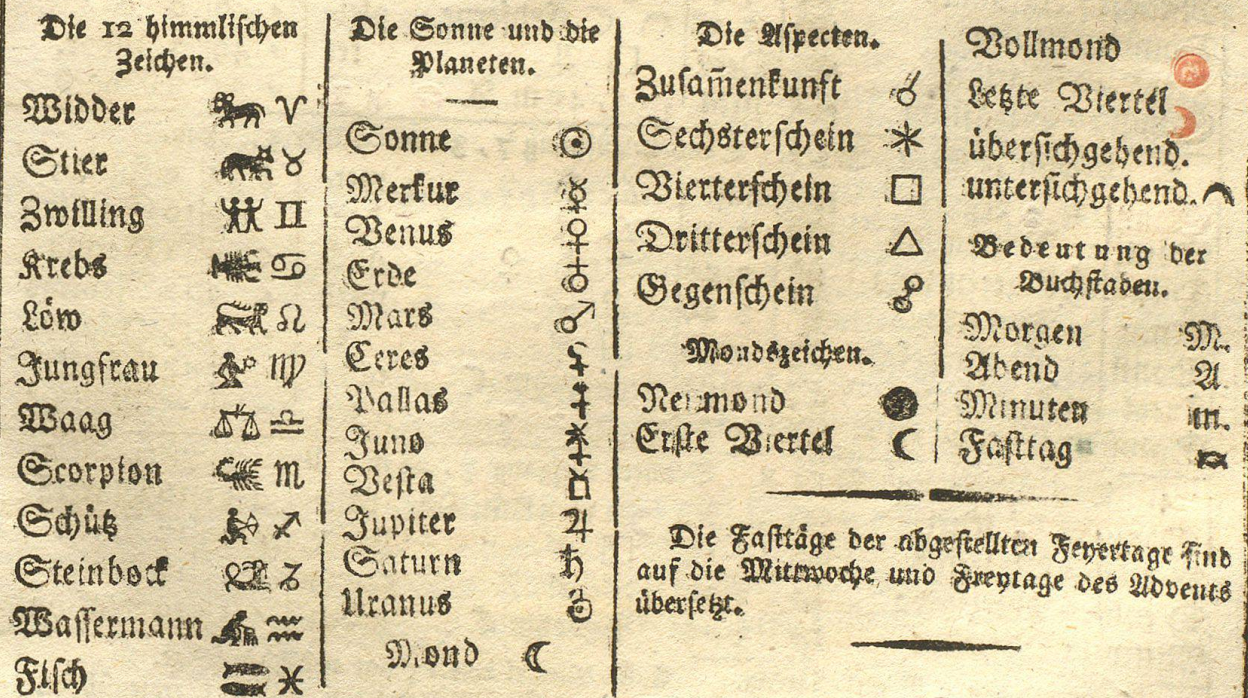 Die 12 himmlischen
Zeichen.
Widder ♈
Stier ♉
Zwilling ♊
Krebs ♋
Löw ♌
Jungfrau ♍
Waag ♎
Scorpion ♏
Schütz ♐
Steinbock ♑
Wassermann ♒
Fisch ♓
Die Sonne und die
Planeten.
Sonne ☉
Merkur ☿
Venus ♀
Erde ♁
Mars ♂
Ceres ⚳
Pallas ⚴
Juno ⚵
Vesta ⚶
Jupiter ♃
Saturn ♄
Uranus ⛢
Mond ☾
Die Aspecten.
Zusam̅enkunft ☌
Sechsterschein ⚹
Vierterschein □
Dritterschein △
Gegenschein ☍
Mondszeichen.
Neumond ●
Erste Viertel ☾
Vollmond
Letzte Viertel
übersichgehend.
untersichgehend.
Bedeutung der
Buchstaben.
Morgen M.
Abend A
Minuten m.
Fasttag
Die Fasttäge der abgestellten Feyertage sind
auf die Mittwoche und Freytage des Advents
übersetzt.